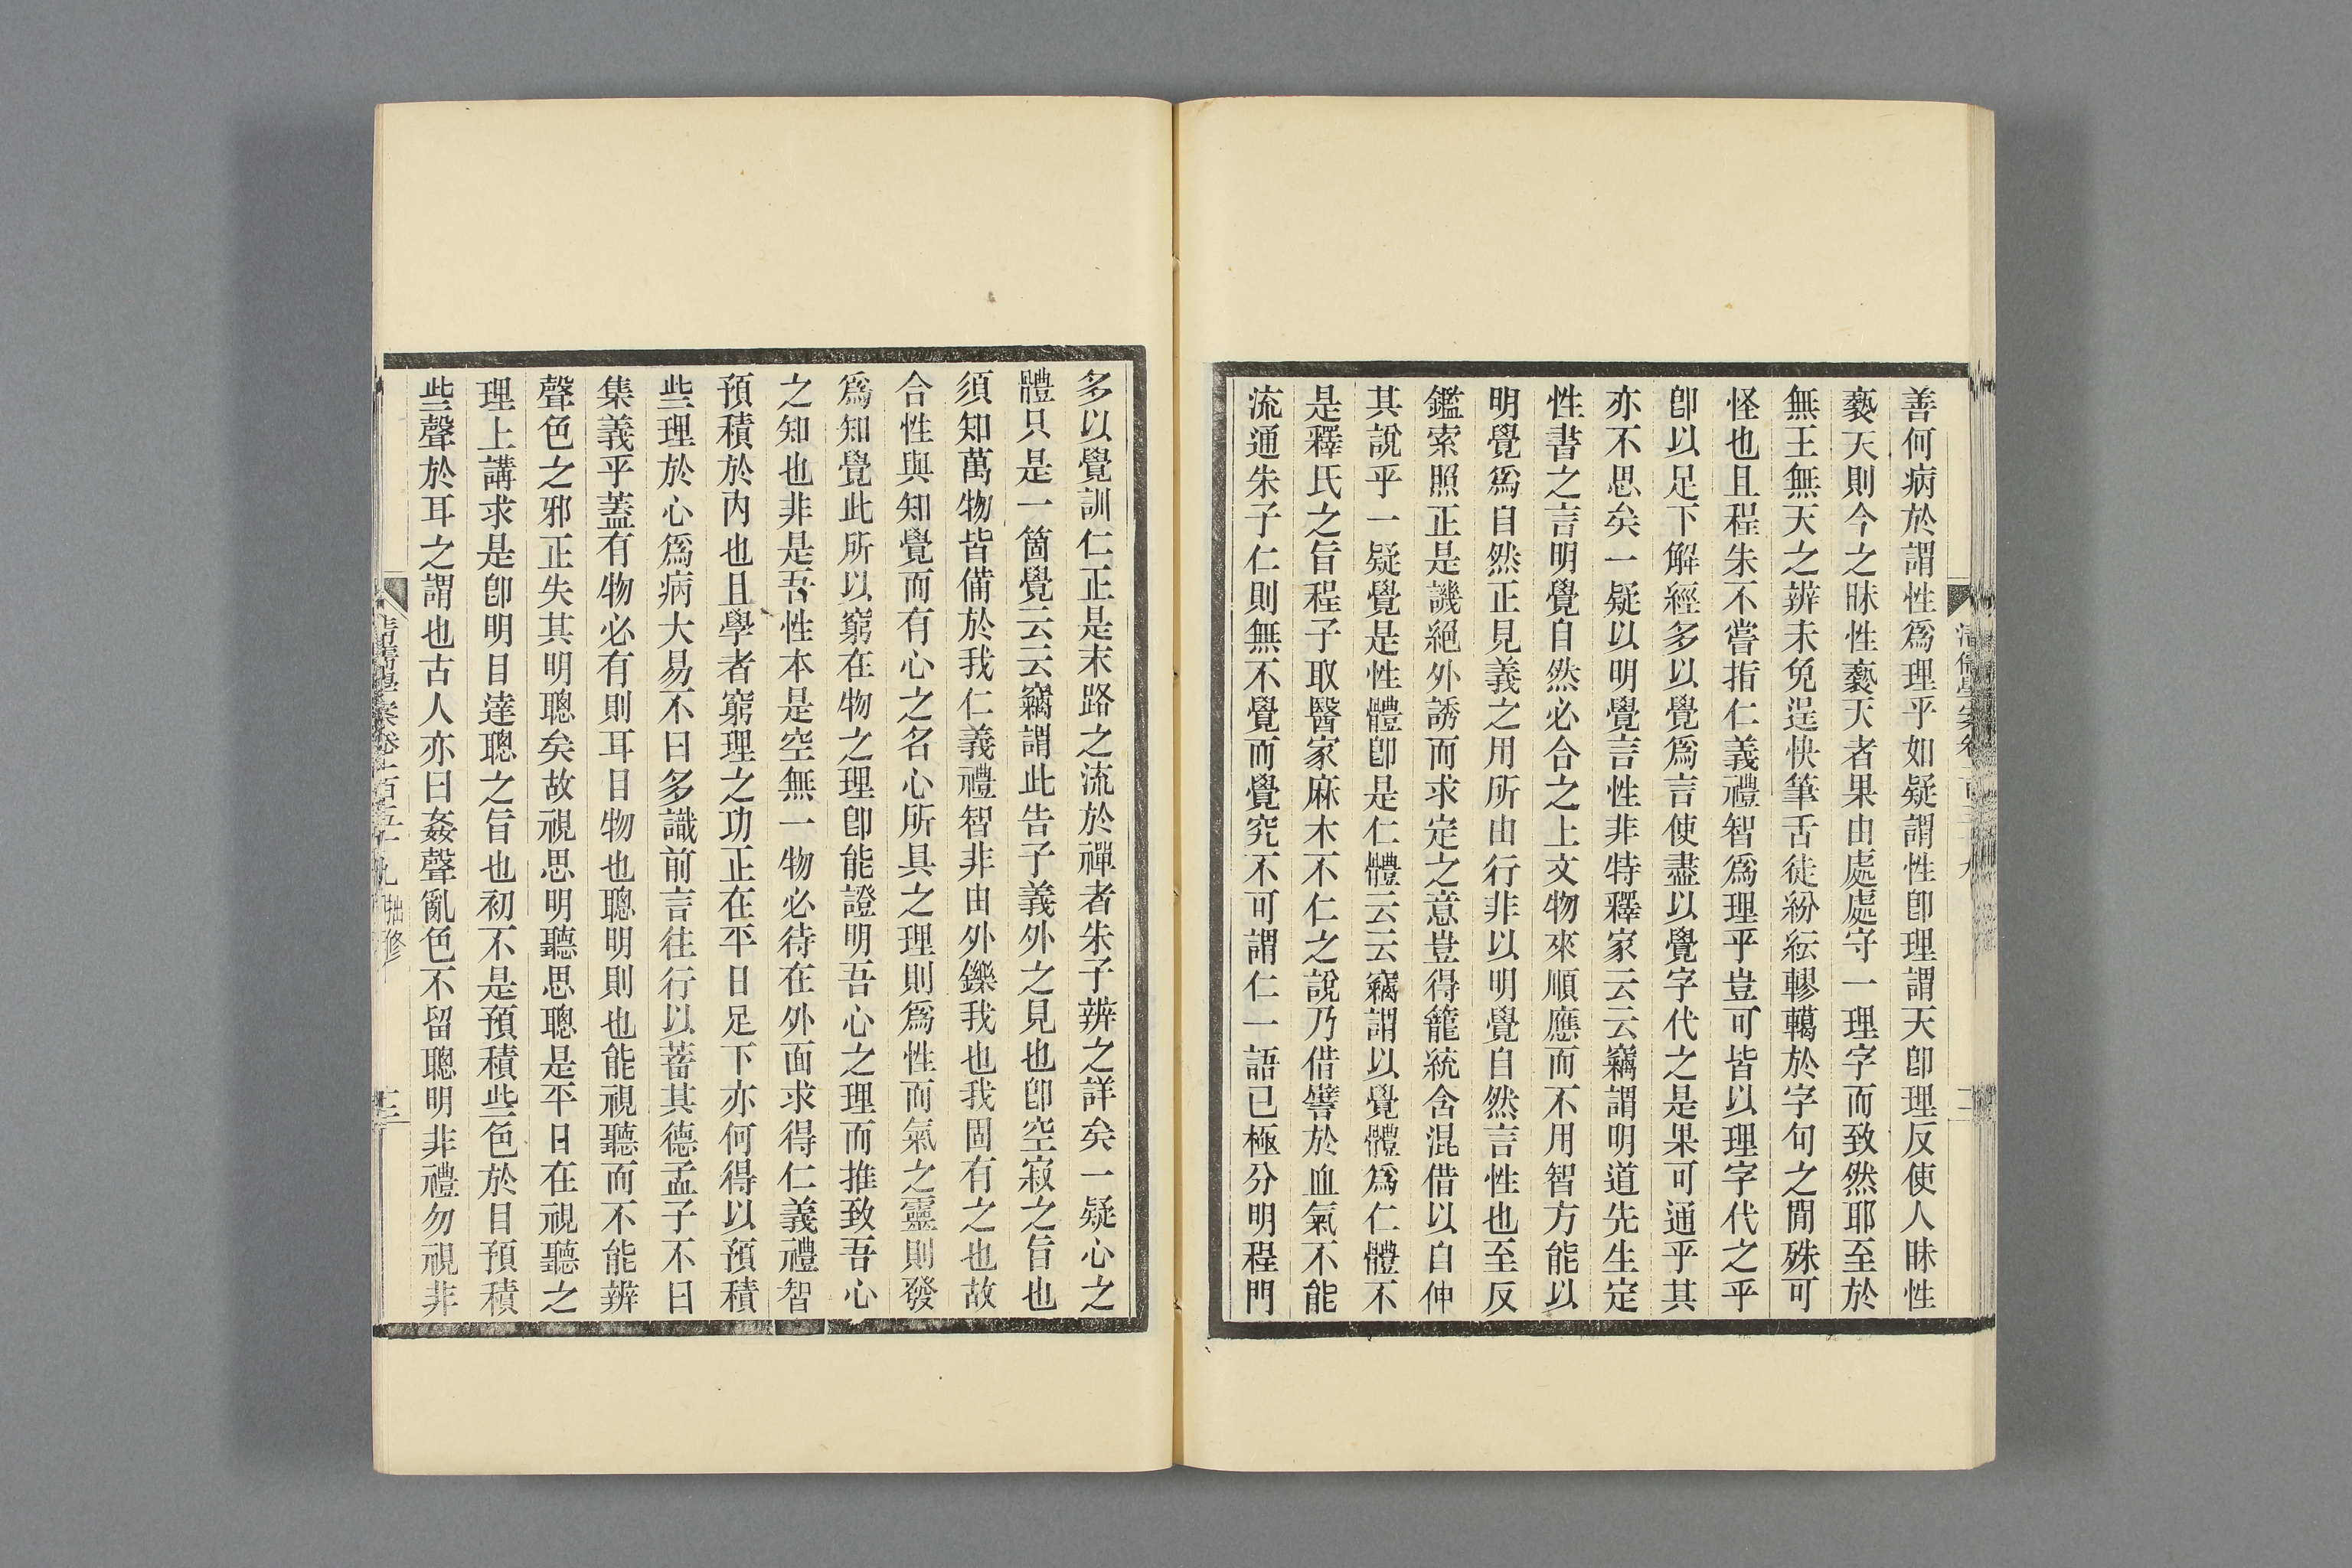 善何病於謂性爲理乎如疑謂性卽理謂天卽理反使人昧性
褻天則今之昧性褻天者果由處處守一理字而致然耶至於
無王無天之辨未免逞快筆舌徒紛紜轇轕於字句之閒殊可
怪也且程朱不嘗指仁義禮智爲理乎豈可皆以理字代之乎
卽以足下解經多以覺爲言使盡以覺字代之是果可通乎其
亦不思矣一疑以明覺言性非特釋家云云竊謂明道先生定
性書之言明覺自然必合之上文物來順應而不用智方能以
明覺爲自然正見義之用所由行非以明覺自然言性也至反
鑑索照正是譏絕外誘而求定之意豈得籠統含混借以自伸
其說乎一疑覺是性體卽是仁體云云竊謂以覺體爲仁體不
是釋氏之旨程子取醫家麻木不仁之說乃借譬於血氣不能
流通朱子仁則無不覺而覺究不可謂仁一語已極分明程門
多以覺訓仁正是末路之流於禪者朱子辨之詳矣一疑心之
體只是一箇覺云云竊謂此告子義外之見也卽空寂之旨也
須知萬物皆備於我仁義禮智非由外鑠我也我固有之也故
合性與知覺而有心之名心所具之理則爲性而氣之靈則發
爲知覺此所以窮在物之理卽能證明吾心之理而推致吾心
之知也非是吾性本是空無一物必待在外面求得仁義禮智
預積於內也且學者窮理之功正在平日足下亦何得以預積
些理於心爲病大易不曰多識前言往行以蓄其德孟子不曰
集義乎蓋有物必有則耳目物也聰明則也能視聽而不能辨
聲色之邪正失其明聰矣故視思明聽思聰是平日在視聽之
理上講求是卽明目達聰之旨也初不是預積些色於目預積
些聲於耳之謂也古人亦曰姦聲亂色不留聰明非禮勿視非